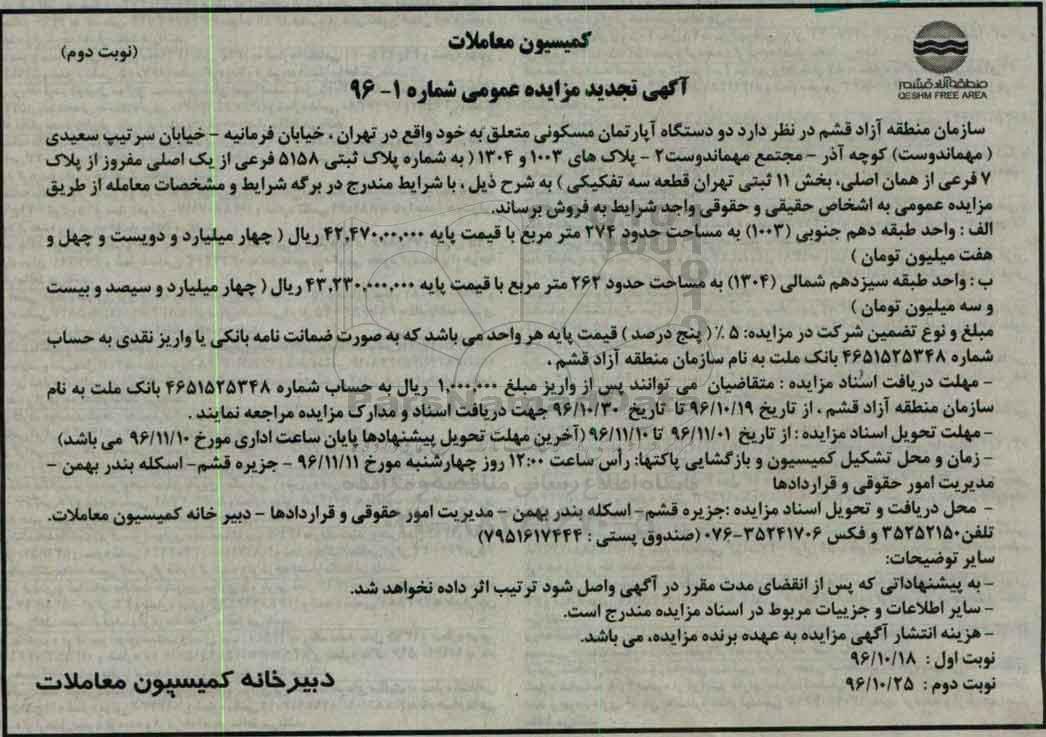 منطقه آزاد قشم
QESHM FREE AREA
کمیسیون معاملات
(نوبت دوم)
آگهی تجدید مزایده عمومی شماره ۱- ۹۶
سازمان منطقه آزاد قشم در نظر دارد دو دستگاه آپارتمان مسکونی متعلق به خود واقع در تهران ، خیابان فرمانیه - خیابان سرتیپ سعیدی
( مهماندوست) کوچه آذر - مجتمع مهماندوست۲ - پلاک های ۱۰۰۳ و ۱۳۰۴ ( به شماره پلاک ثبتی ۵۱۵۸ فرعی از یک اصلی مفروز از پلاک
۷ فرعی از همان اصلی، بخش ۱۱ ثبتی تهران قطعه سه تفکیکی ) به شرح ذیل ، با شرایط مندرج در برگه شرایط و مشخصات معامله از طریق
مزایده عمومی به اشخاص حقیقی و حقوقی واجد شرایط به فروش برساند.
الف : واحد طبقه دهم جنوبی (۱۰۰۳) به مساحت حدود ۲۷۴ متر مربع با قیمت پایه ۴۲,۴۷۰,۰۰,۰۰۰ ریال ( چهار میلیارد و دویست و چهل و
هفت میلیون تومان )
ب : واحد طبقه سیزدهم شمالی (۱۳۰۴) به مساحت حدود ۲۶۲ متر مربع با قیمت پایه ۴۳,۲۳۰,۰۰۰,۰۰۰ ریال ( چهار میلیارد و سیصد و بیست
و سه میلیون تومان )
مبلغ و نوع تضمین شرکت در مزایده: ۵ ٪ ( پنج درصد ) قیمت پایه هر واحد می باشد که به صورت ضمانت نامه بانکی یا واریز نقدی به حساب
شماره ۴۶۵۱۵۲۵۳۴۸ بانک ملت به نام سازمان منطقه آزاد قشم .
- مهلت دریافت اسناد مزایده : متقاضیان می توانند پس از واریز مبلغ ۱,۰۰۰,۰۰۰ ریال به حساب شماره ۴۶۵۱۵۲۵۳۴۸ بانک ملت به نام
سازمان منطقه آزاد قشم ، از تاریخ ۹۶/۱۰/۱۹ تا تاریخ ۹۶/۱۰/۳۰ جهت دریافت اسناد و مدارک مزایده مراجعه نمایند .
- مهلت تحویل اسناد مزایده : از تاریخ ۹۶/۱۱/۰۱ تا ۹۶/۱۱/۱۰ (آخرین مهلت تحویل پیشنهادها پایان ساعت اداری مورخ ۹۶/۱۱/۱۰ می باشد)
- زمان و محل تشکیل کمیسیون و بازگشایی پاکتها: رأس ساعت ۱۲:۰۰ روز چهارشنبه مورخ ۹۶/۱۱/۱۱ - جزیره قشم- اسکله بندر بهمن -
مدیریت امور حقوقی و قراردادها
- محل دریافت و تحویل اسناد مزایده :جزیره قشم- اسکله بندر بهمن - مدیریت امور حقوقی و قراردادها - دبیر خانه کمیسیون معاملات.
تلفن۳۵۲۵۲۱۵۰ و فکس ۳۵۲۴۱۷۰۶-۰۷۶ (صندوق پستی : ۷۹۵۱۶۱۷۴۴۴)
سایر توضیحات:
- به پیشنهاداتی که پس از انقضای مدت مقرر در آگهی واصل شود ترتیب اثر داده نخواهد شد.
- سایر اطلاعات و جزییات مربوط در اسناد مزایده مندرج است.
- هزینه انتشار آگهی مزایده به عهده برنده مزایده، می باشد.
نوبت اول : ۹۶/۱۰/۱۸
نوبت دوم : ۹۶/۱۰/۲۵
دبیرخانه کمیسیون معاملات